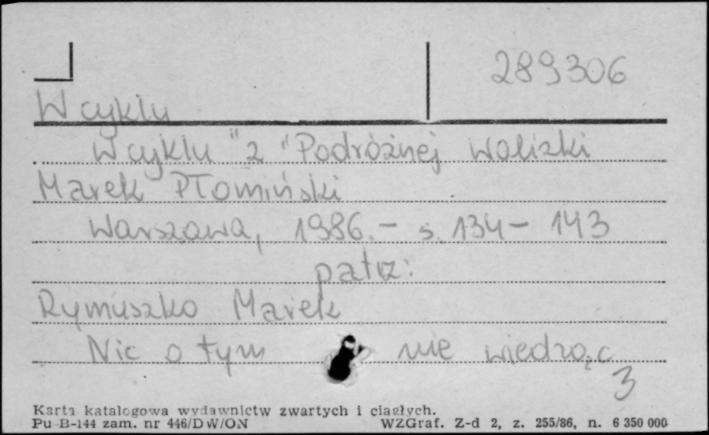 289306
W cyklu
W cyklu "z "Podróżnej walizki
Marek Płomiński
Warszawa, 1986.- s. 134-143
patrz:
Rymuszko Marek
Nic o tym nie wiedząc
3
Karta katalogowa wydawnictw zwartych i ciągłych.
Pu-B-144 zam. nr 446/DW/ON WZGraf. Z-d 2, z. 255/86, n. 6 350 000